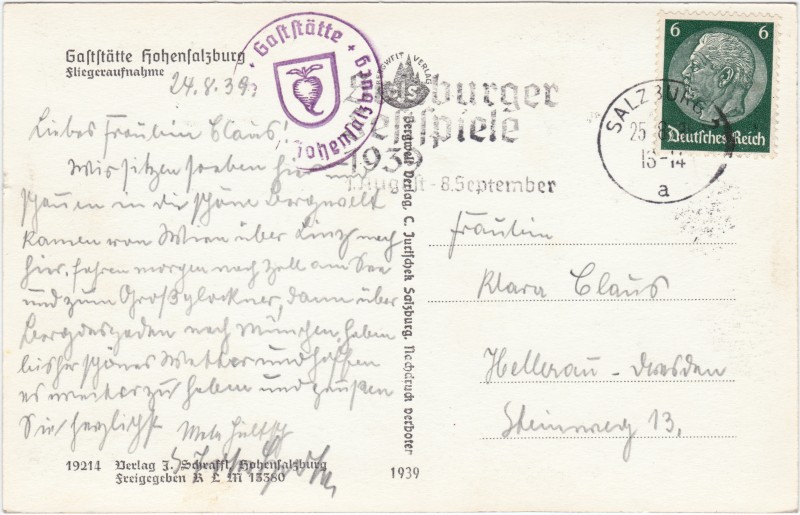 Gaststätte Hohensalzburg
Fliegeraufnahme
24.8.39.
Gaststätte
Hohensalzburg
BERGWELT VERLAG
CJS
Salzburger
Festspiele
1939
1. August - 8. September
SALZBURG
25. 8.
13-14
a
6 6
Deutsches Reich
Liebes Fräulein Claus!
Wir sitzen soeben hier und
schauen in die schöne Bergwelt
kamen von Wien über Linz nach
hier, fahren morgen nach Zell am See
und zum Großglockner, dann über
Berchtesgaden nach München, haben
bisher schönes Wetter und hoffen
es weiter zu haben und grüßen
Sie herzlichst
Fräulein
Klara Claus
Hellerau-Dresden
Steinweg 13.
Bergwelt Verlag, C. Jurischek Salzburg. Nachdruck verboten
19214 Verlag J. Schraffl, Hohensalzburg
Freigegeben R L M 13380
1939